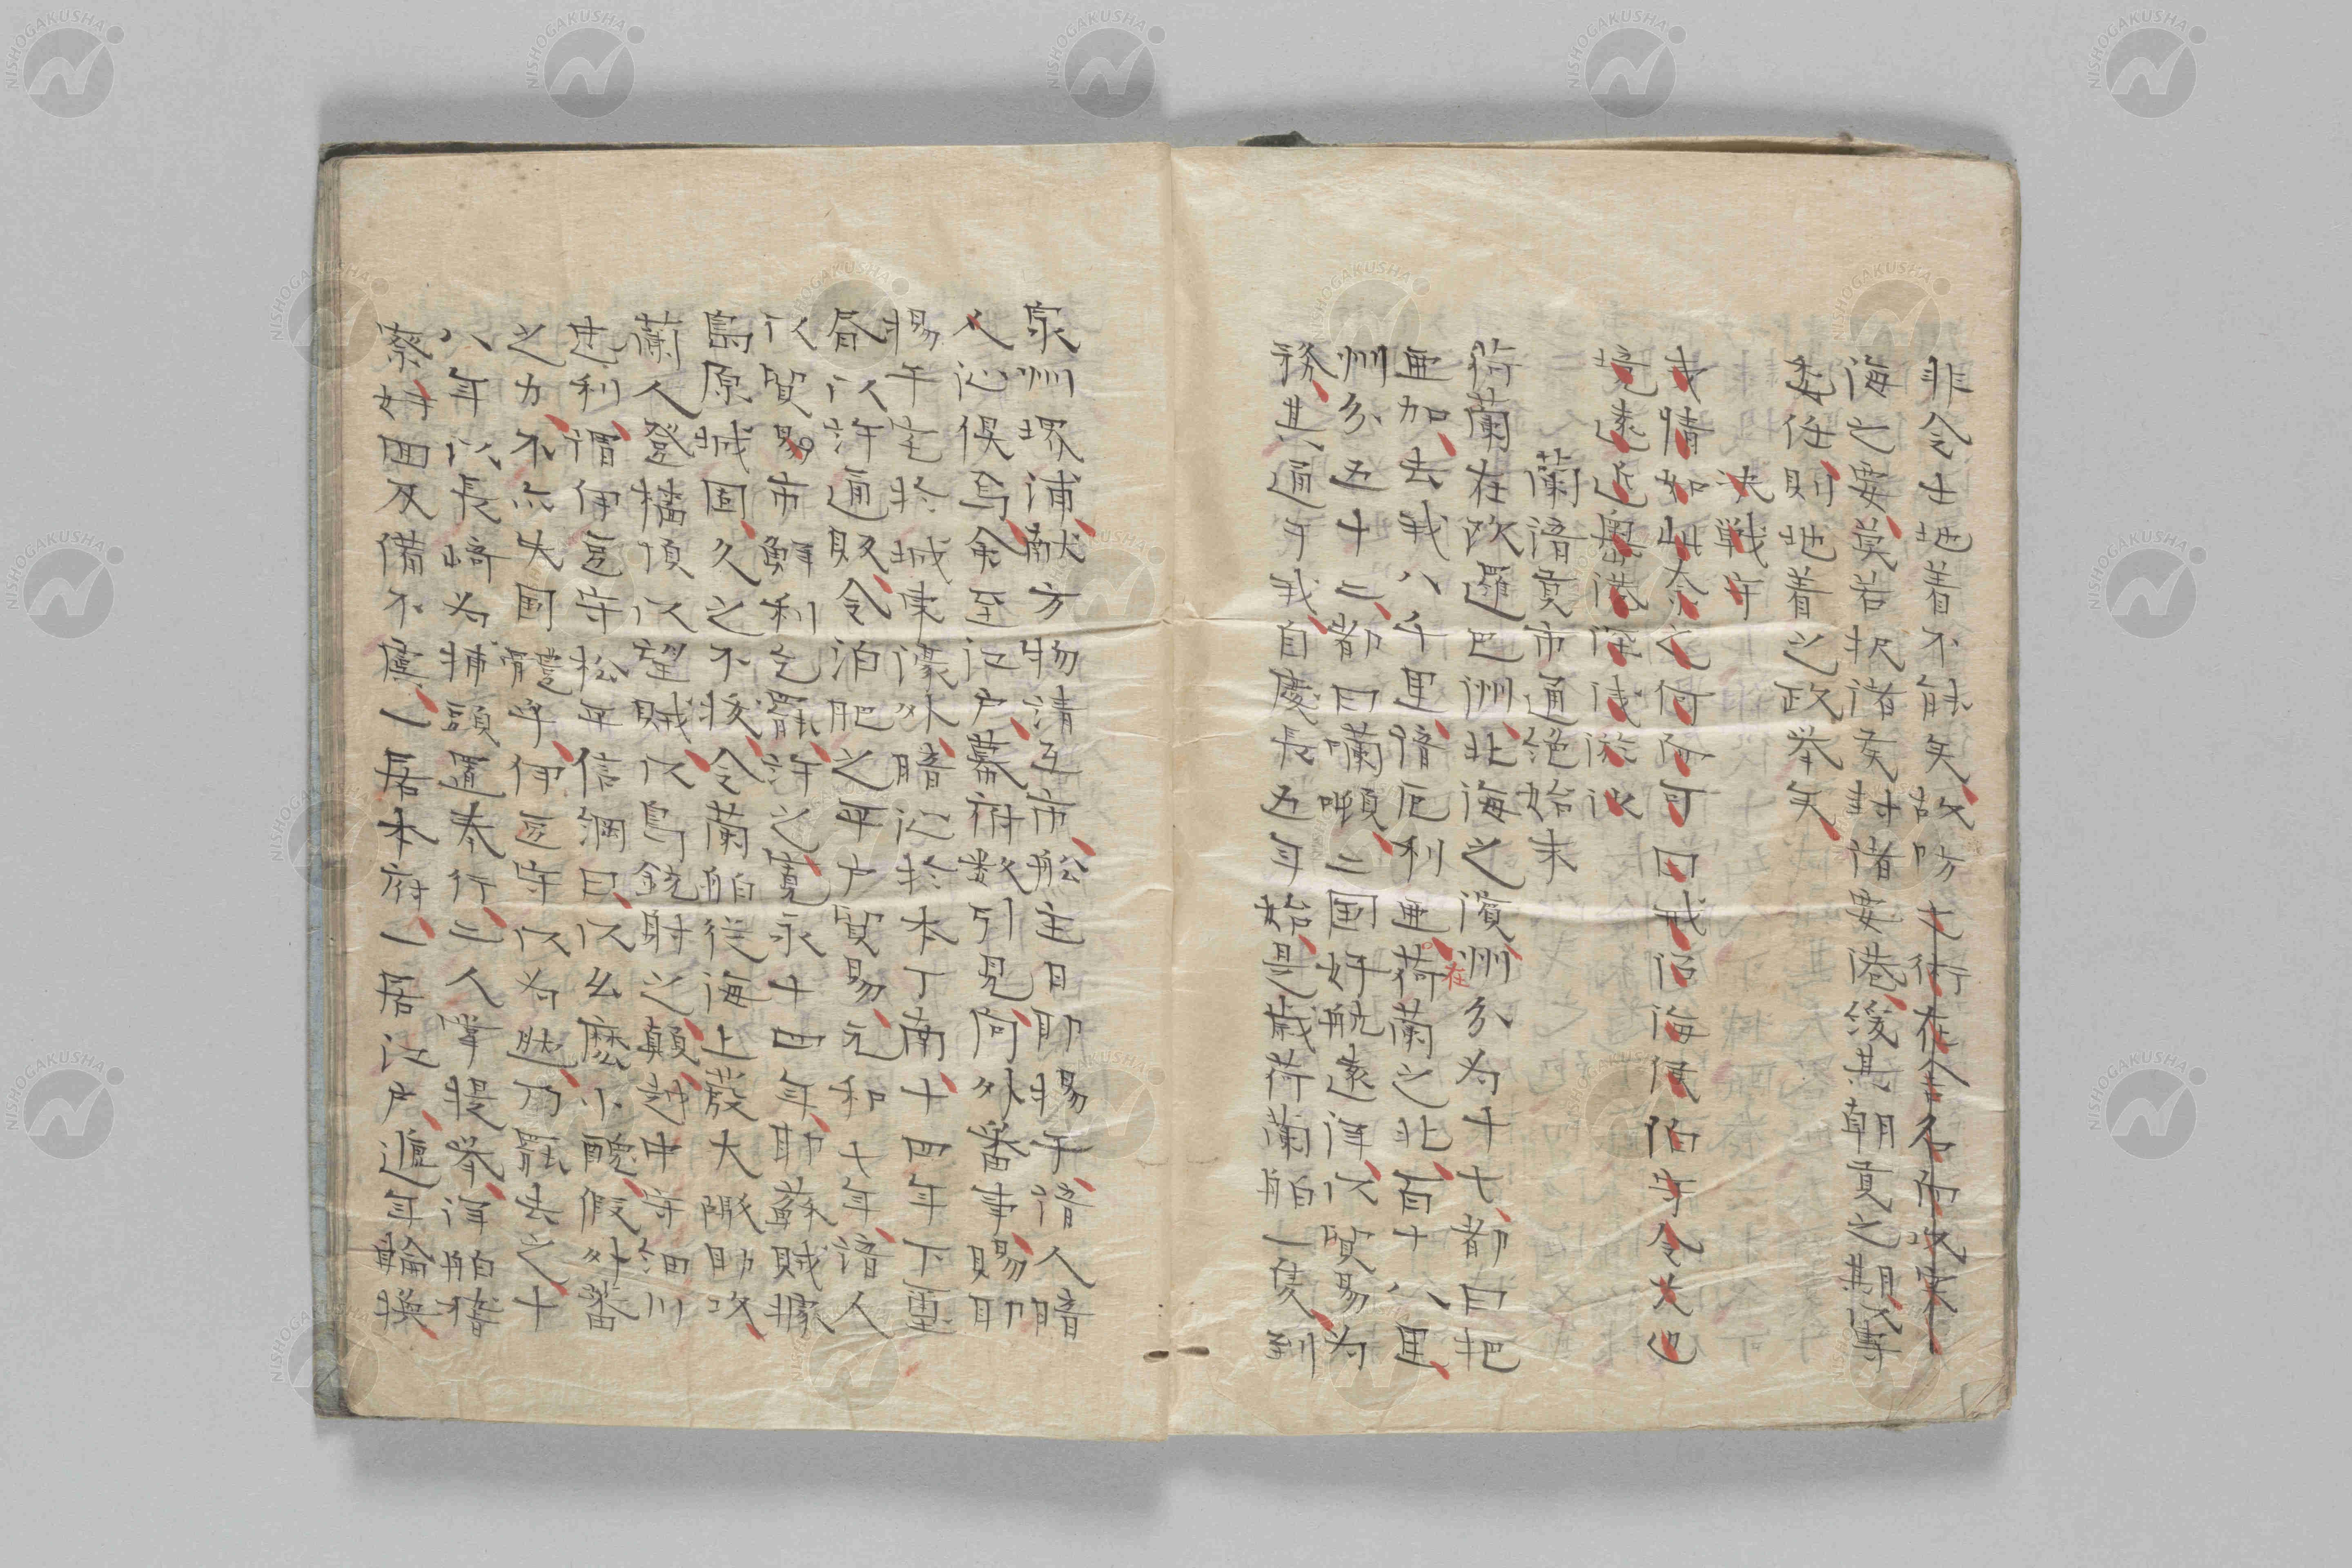 非令士地着不能矣故防
海之要莫若択诸矦封諸要港緩其朝貢之期専
委任則地着之政挙矣
決戦守
夫情如此奈之何而可曰戒沿海侯伯守令先也
境遠近奥港深浅
蘭諳貢市通絶始末
荷蘭在欧邏巴洲北海之濱州分為十七都曰把
亜加去我八千里諳厄利亜在荷蘭之北百十八里
州分五十二都曰囒噸二国好航遠洋以貿易為
務其通于我自慶長五年始是歳荷蘭舶一隻到
泉州堺浦献方物請互市舩主曰耶揚子諳人暗
人沁俱焉余至江戸幕府数引見问外番事賜耶
揚子宅於城東濠外暗沁於本丁南十四年下璽
昏以許通販令泊肥之平戸貿易元和七年諳人
以貿易市鮮利乞罷許之寛永十四年耶蘇賊據
島原城固久之不抜令蘭舶従海上發大礟助攻
蘭人登檣頂以望賊以鳥銃射之顛越中守細川
忠利謂伊豆守松平信綱曰以幺麼小醜假外番
之力不亦失国體乎伊豆守以為然乃罷去之十
八年以長崎為埔頭置奉行二人掌提挙洋舶稽
察奸四及備不虞一居本府一居江戸遞年輪換
在
NISHOGAKUSHA